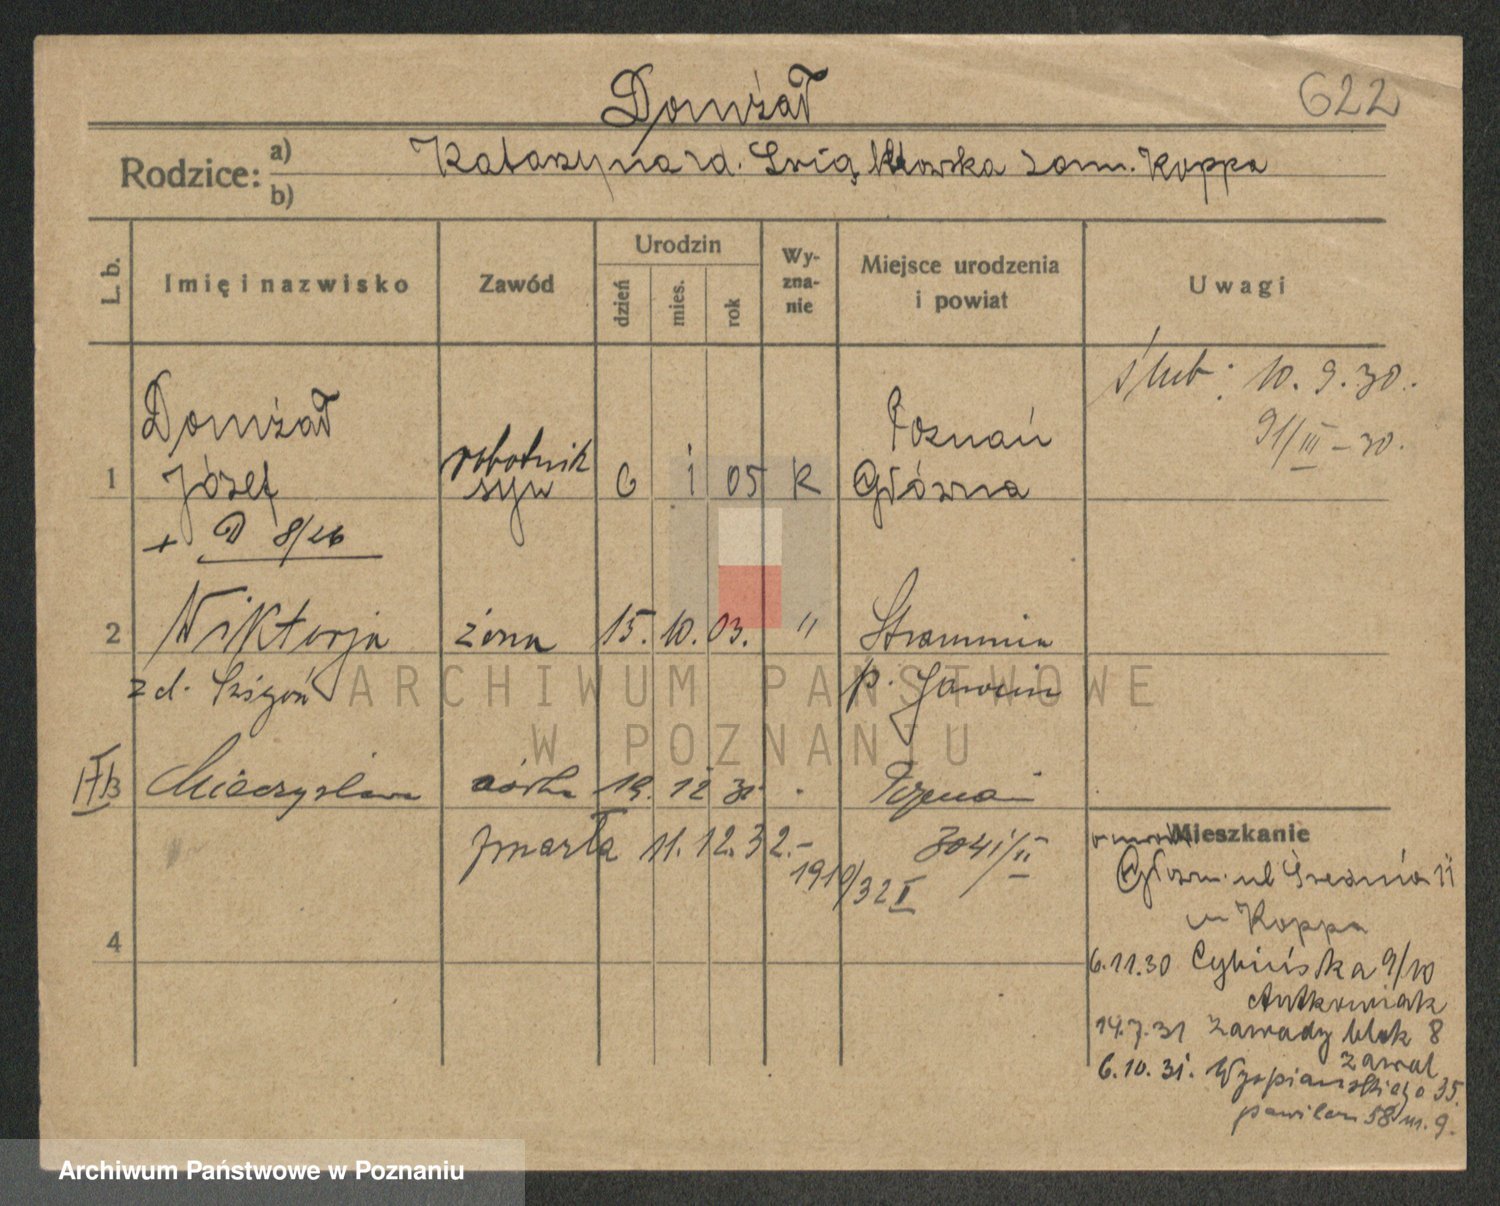 Domżał
622
Rodzice:
a)
b)
Katarzyna zd. zam. Koppa
L. b.
Imię i nazwisko
Zawód
Urodzin
dzień
mies.
rok
Wy-
zna-
nie
Miejsce urodzenia
i powiat
Uwagi
ślub: 10. 9. 30.
91/III - 30.
Domżał
1 Józef
robotnik
syn
6 1 05 K
Poznań
Główna
+ D 8/26
2 Wiktorja żona 15. 10. 03. "
zd.
p. Jarocin
3 Mieczysława córka 19. 12
Poznań
zmarła 11. 12. 32. -
1910/32 I
3041/II
4
Mieszkanie
Główn. ul Średnia 11
u Koppa
6.11.30 Cybińska 9/10
Antkowiak
14.7.31 Zawady blok 8
6.10.31. Wyspiańskiego 35.
pawilon 58 m. 9.
ARCHIWUM PAŃSTWOWE
W POZNANIU
Archiwum Państwowe w Poznaniu